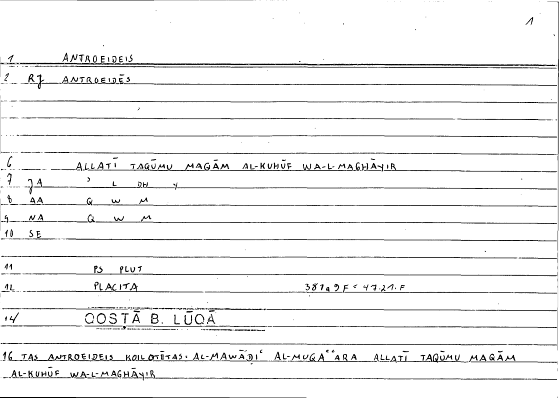 1
1 ANTROEIDEIS
2 RJ ANTROEIDĒS
6 ALLATĪ TAQŪMU MAQĀM AL-KUHŪF WA-L-MAGHĀYIR
7 JA ʾ L DH Y
8 AA Q W M
9 NA Q W M
10 SE
11 PS PLUT
12 PLACITA 381a9F = 47.21.F
14 QOSṬĀ B. LŪQĀ
16 TAS ANTROEIDEIS KOILOTĒTAS: AL-MAWĀḌIʿ AL-MUQAʿʿARA ALLATĪ TAQŪMU MAQĀM
AL-KUHŪF WA-L-MAGHĀYIR